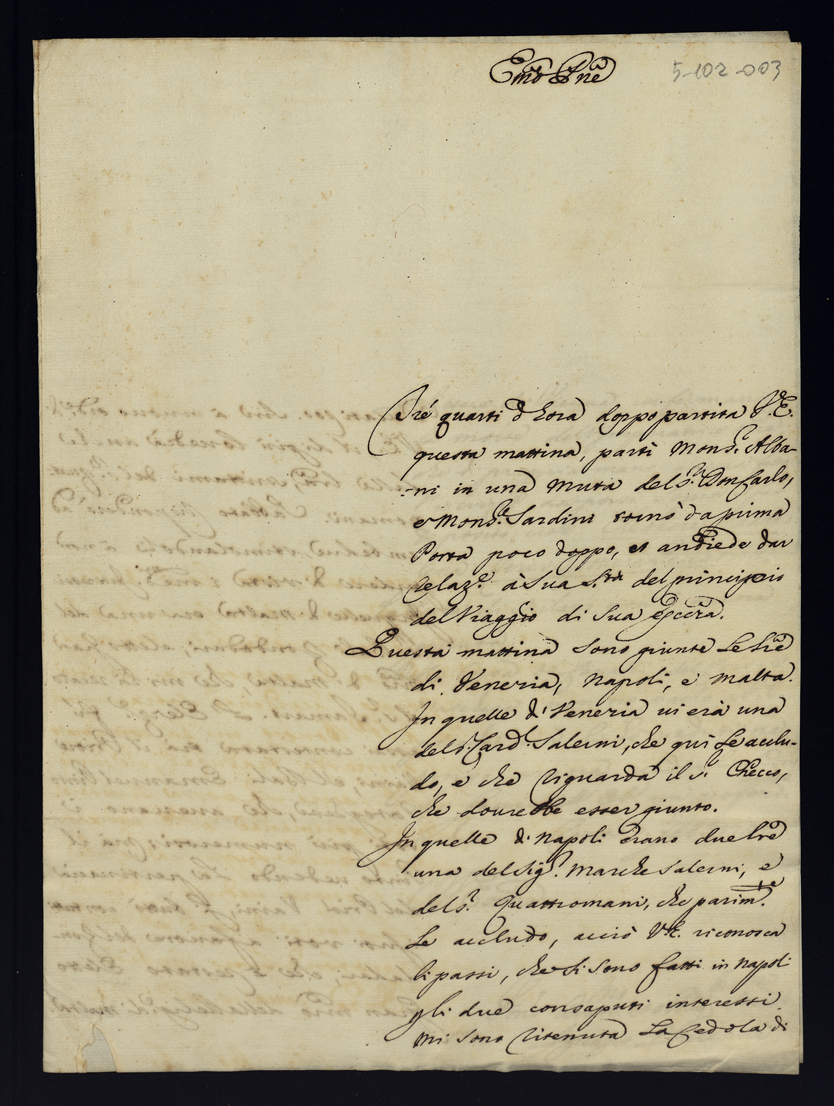 Emō Pnē
5-102-003
Tré quarti d'hora doppo partita V.E.
questa mattina, parti Mons.r Alba-
ni in una muta del S.r Don Carlo,
e Mons.r Sardini tornò da prima
Porta poco doppo, et andiede dar
relaz.e à Sua S.tà del principio
del Viaggio di Sua
Questa mattina sono giunte le lrē
di Venezia, Napoli, e Malta.
In quelle di Venezia vi era una
del S.r Card.l Salerni, che quì le acclu-
do, e che riguarda il S.r Checco,
che dovrebbe esser giunto.
In quelle di Napoli erano due lrē
una del Sig.r Marche Salerni, e
del S.r Quattromani, che parim.te
le accludo, acciò V.E. riconosca
li passi, che si sono fatti in Napoli
p li due consaputi interessi.
Mi sono ritenuta la Cedola di